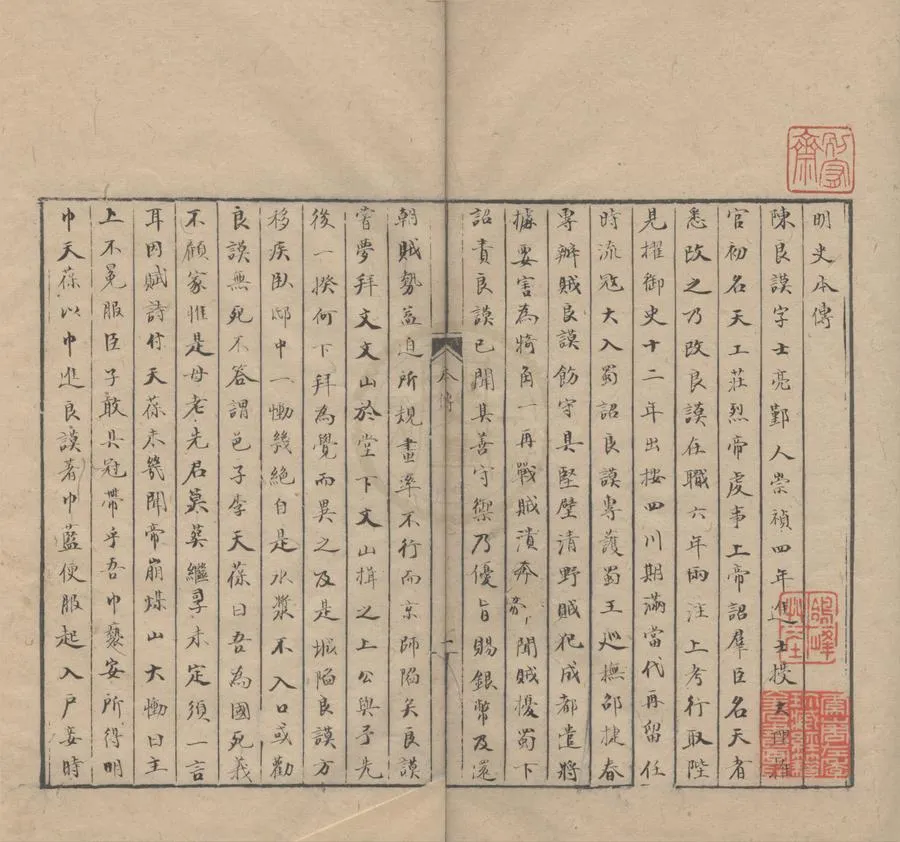 明史本傳
陳良謨字士亮鄞人崇禎四年進士授大理推
官初名天工莊烈帝虔事上帝詔羣臣名天者
悉改之乃改良謨在職六年兩注上考行取陛
見擢御史十二年出按四川期滿當代再留任
時流寇大入蜀詔良謨專護蜀王巡撫邵捷春
專辦賊良謨飭守具堅壁清野賊犯成都遣將
據要害為犄角一再戰賊潰奔 聞賊擾蜀下
詔責良謨已聞其善守禦乃優旨賜銀幣及還
朝賊勢益迫所規畫率不行而京師陷矣良謨
嘗夢拜文文山於堂下文山揖之上公與予先
後一揆何下拜為覺而異之及是城陷良謨方
移疾臥邸中一慟幾絕自是水漿不入口或勸
良謨無死不答謂邑子李天葆曰吾為國死義
不顧家惟是母老先君莫葬繼孚未定須一言
耳因賦詩付天葆未幾聞帝崩煤山大慟曰主
上不冕服臣子敢具冠帶乎吾巾褻安所得明
巾天葆以巾進良謨著巾藍便服起入戶妾時
本傳
一
鴿峰